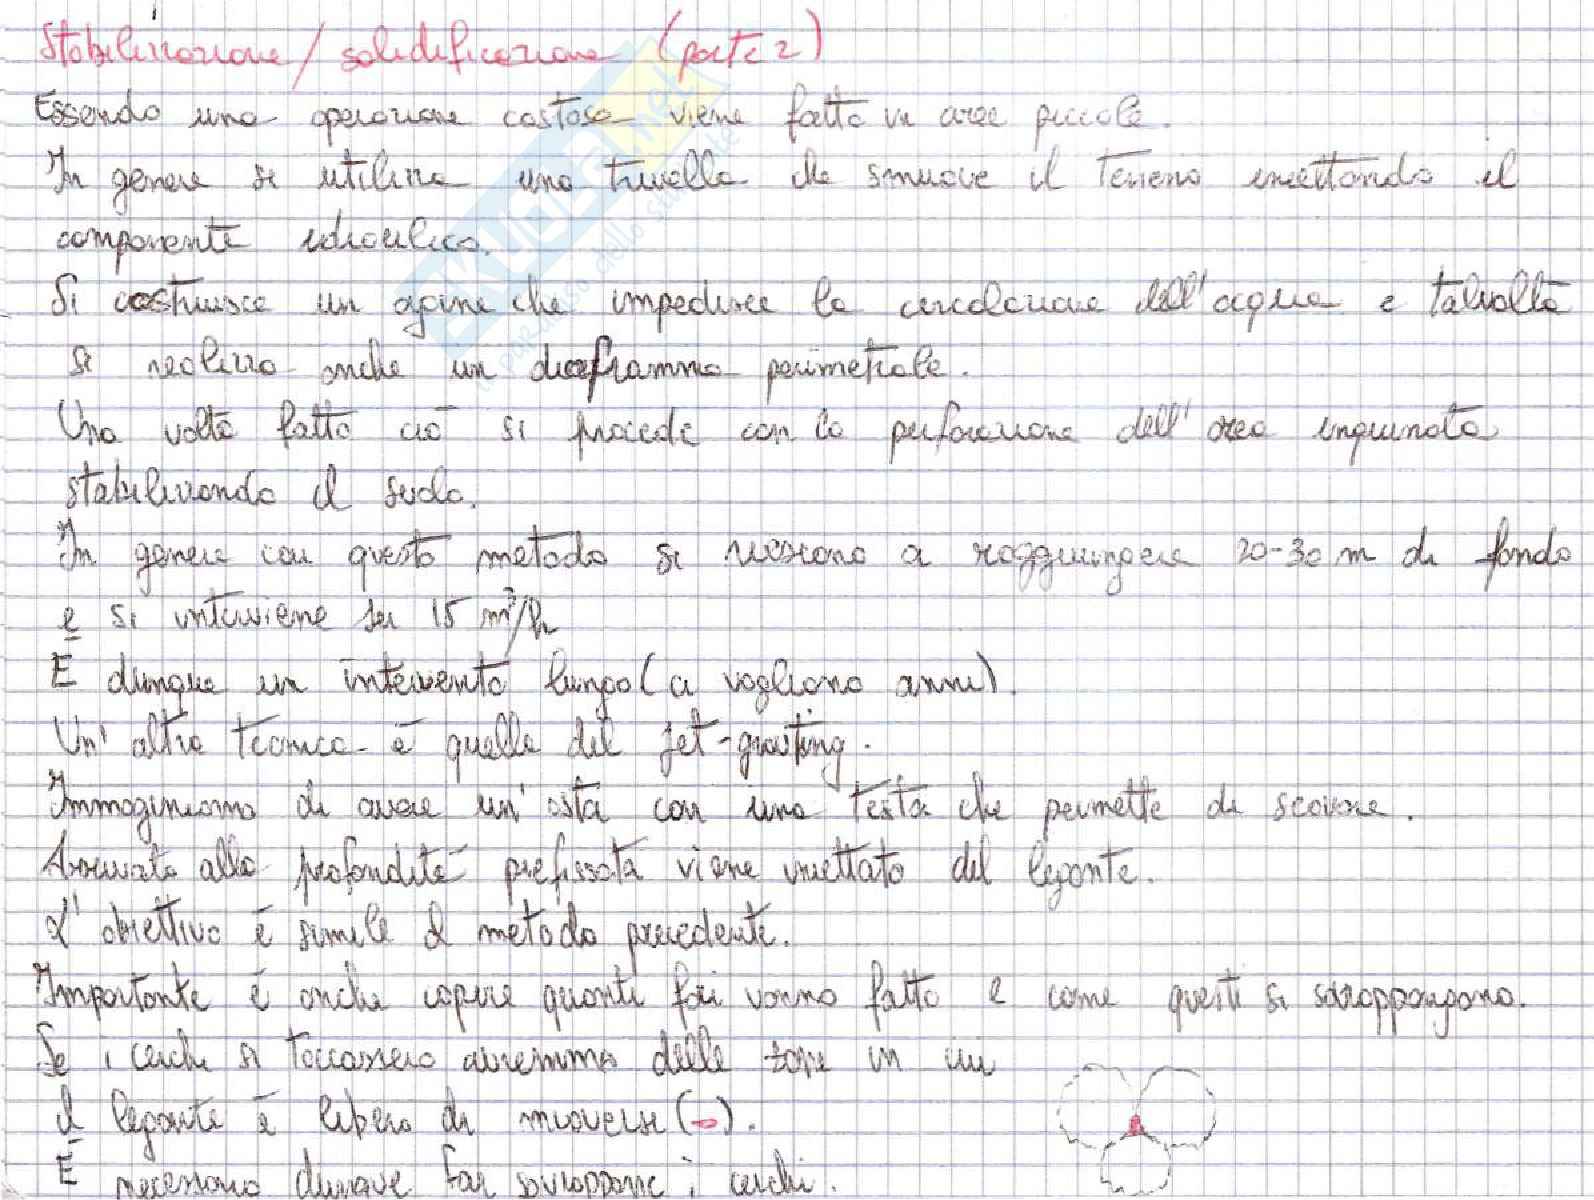 Stabilizzazione / solidificazione (parte 2)
Essendo una operazione costosa viene fatto in aree piccole.
In genere si utilizza una trivella che smuove il terreno iniettando il
componente idraulico.
Si costruisce un argine che impedisce la circolazione dell'acqua e talvolta
si realizza anche un diaframma perimetrale.
Una volta fatto ciò si procede con la perforazione dell'area inquinata
stabilizzando il suolo.
In genere con questo metodo si riescono a raggiungere 20-30 m di fondo
e si interviene su 15 m³/h
È dunque un intervento lungo (ci vogliono anni).
Un'altra tecnica è quella del jet-grouting.
Immaginiamo di avere un'asta con una testa che permette di scavare.
Arrivato alla profondità prefissata viene iniettato del legante.
L'obiettivo è simile al metodo precedente.
Importante è anche capire quanti fori vanno fatto e come questi si sovrappongono.
Se i cerchi si toccassero avremmo delle zone in cui
il legante è libero di muoversi ( ).
È necessario dunque far sovrapporre i cerchi.
SKUOLA.net
il paradiso dello studente